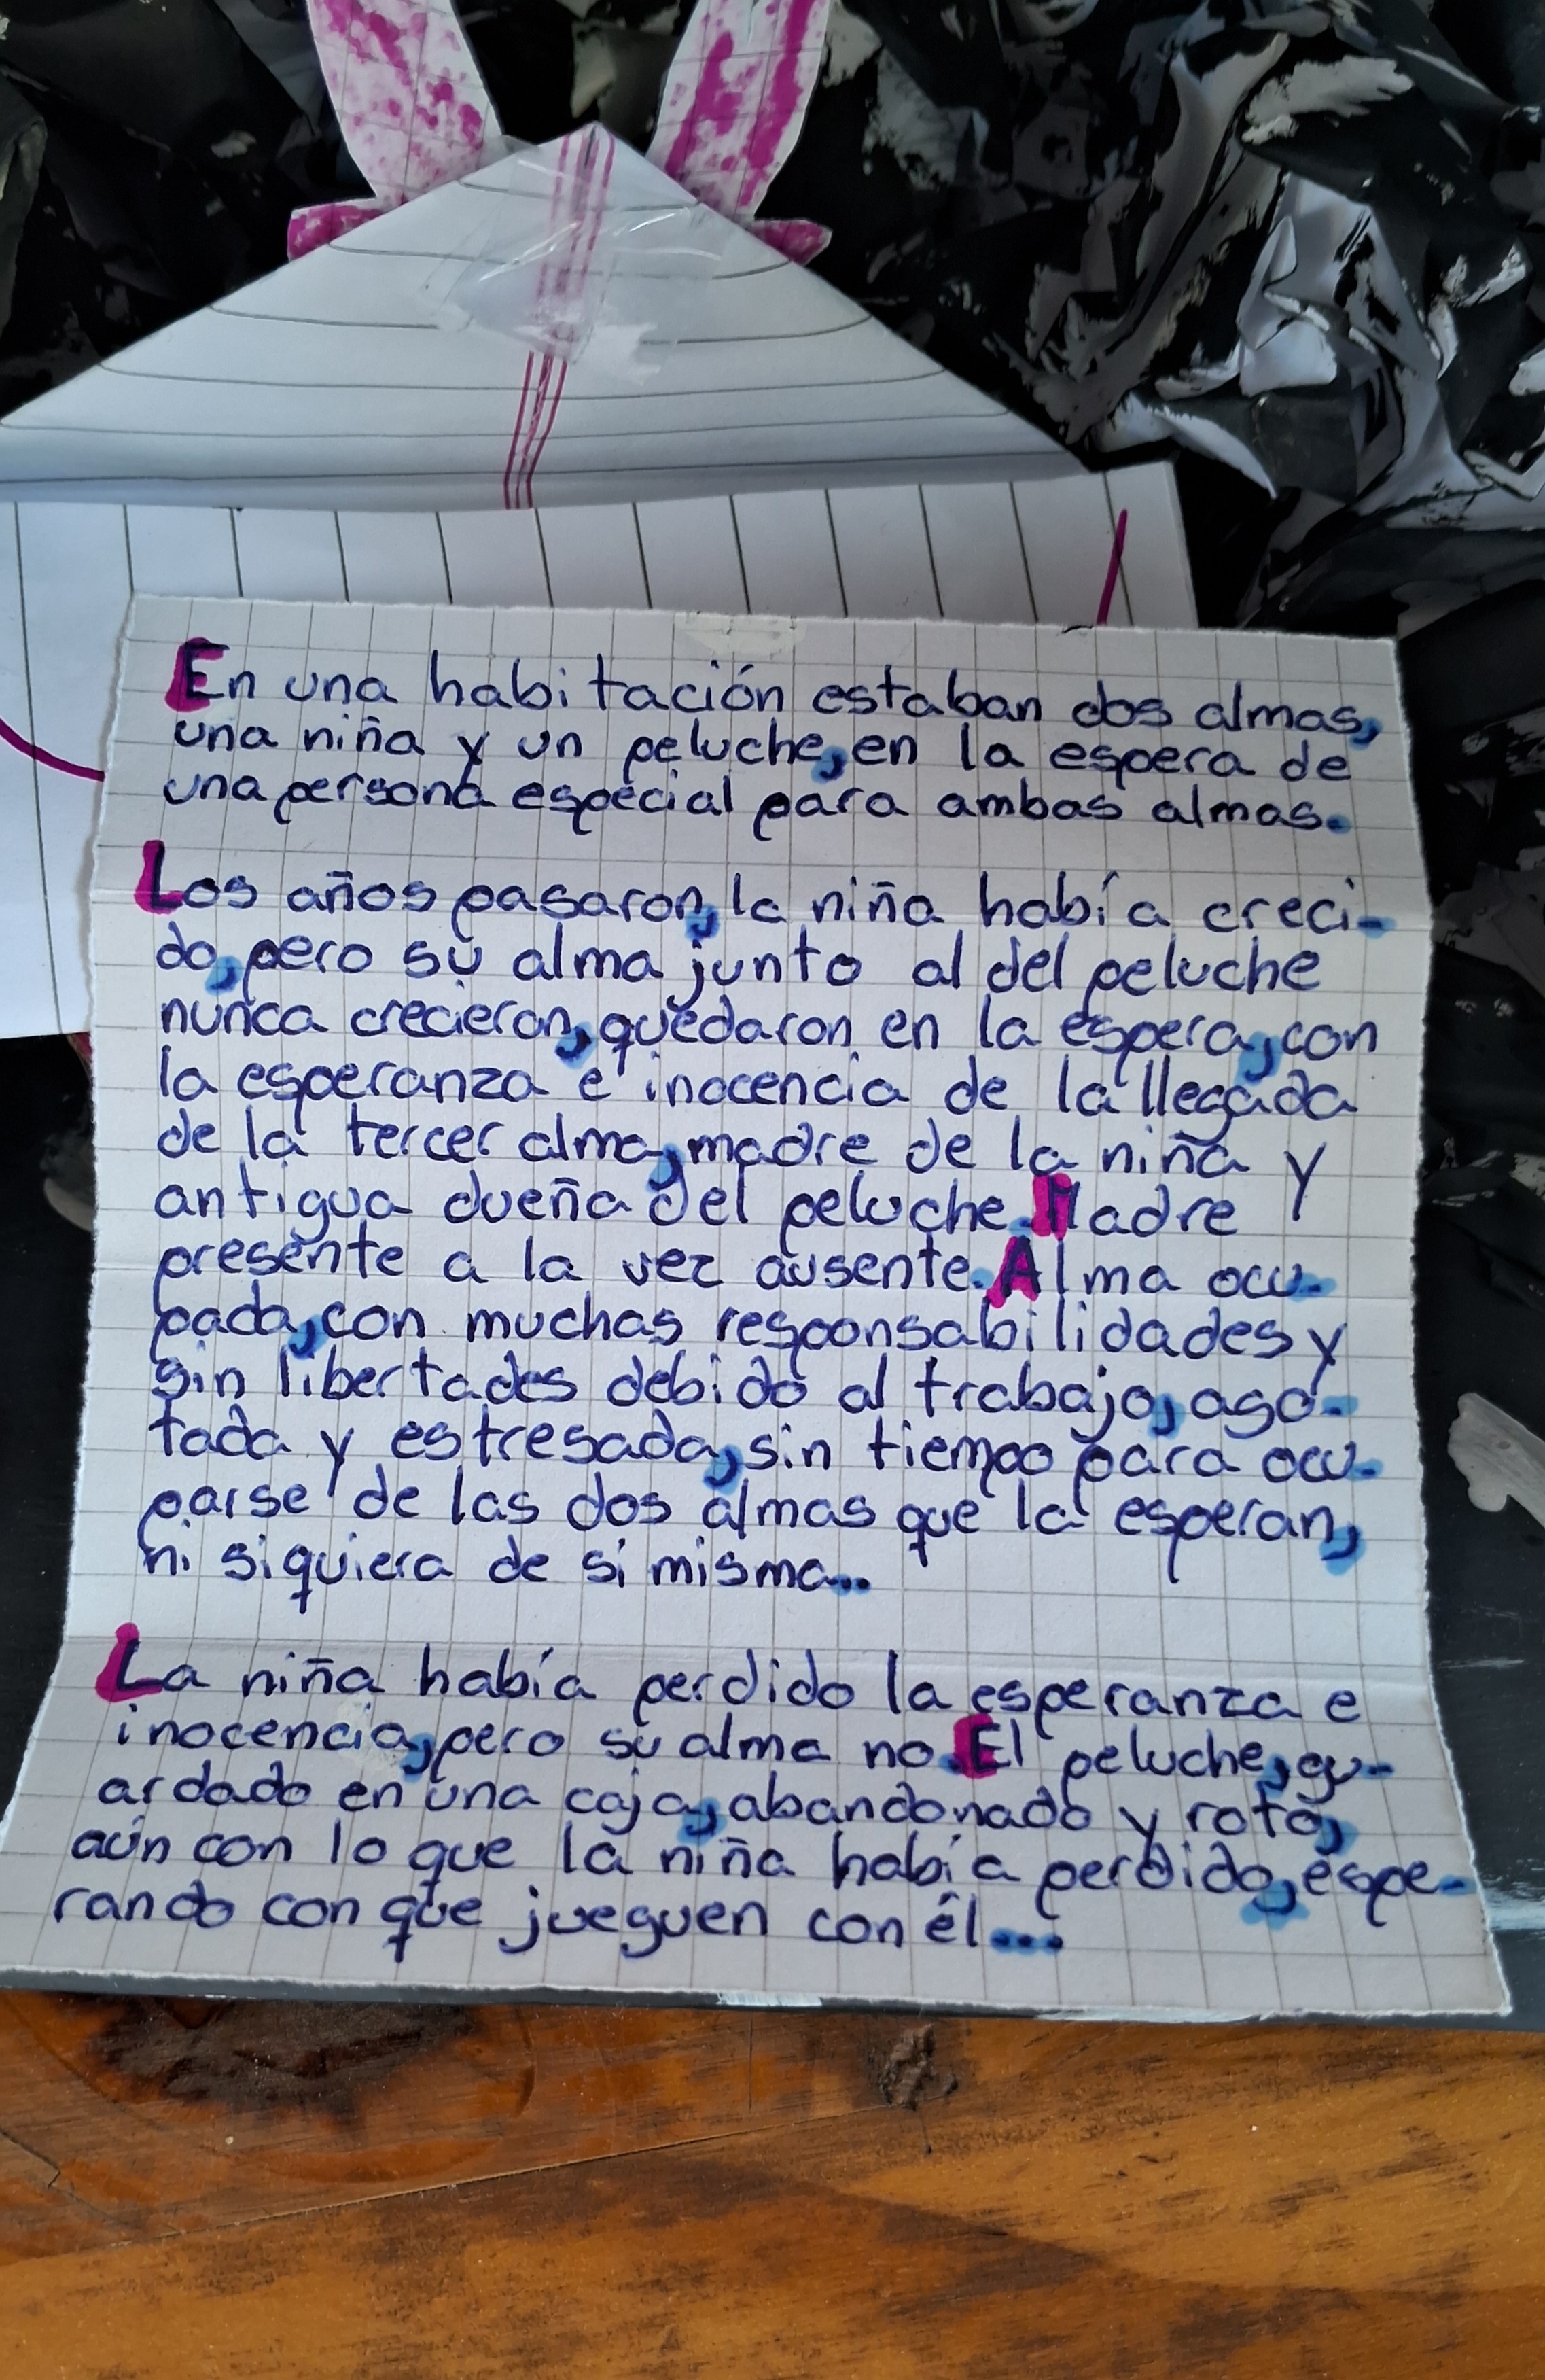 En una habitación estaban dos almas,
una niña y un peluche, en la espera de
una persona especial para ambas almas.
Los años pasaron, la niña había creci-
do, pero su alma junto al del peluche
nunca crecieron, quedaron en la espera, con
la esperanza e inocencia de la llegada
de la tercer alma, madre de la niña y
antigua dueña del peluche. Madre
presente a la vez ausente. Alma ocu-
pada, con muchas responsabilidades y
sin libertades debido al trabajo, ago-
tada y estresada, sin tiempo para ocu-
parse de las dos almas que la esperan,
ni siquiera de si misma...
La niña había perdido la esperanza e
inocencia, pero su alma no. El peluche, gu-
ardado en una caja, abandonado y roto,
aún con lo que la niña había perdido, espe-
rando con que jueguen con él...